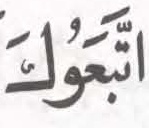 اتَّبَعُوكَ